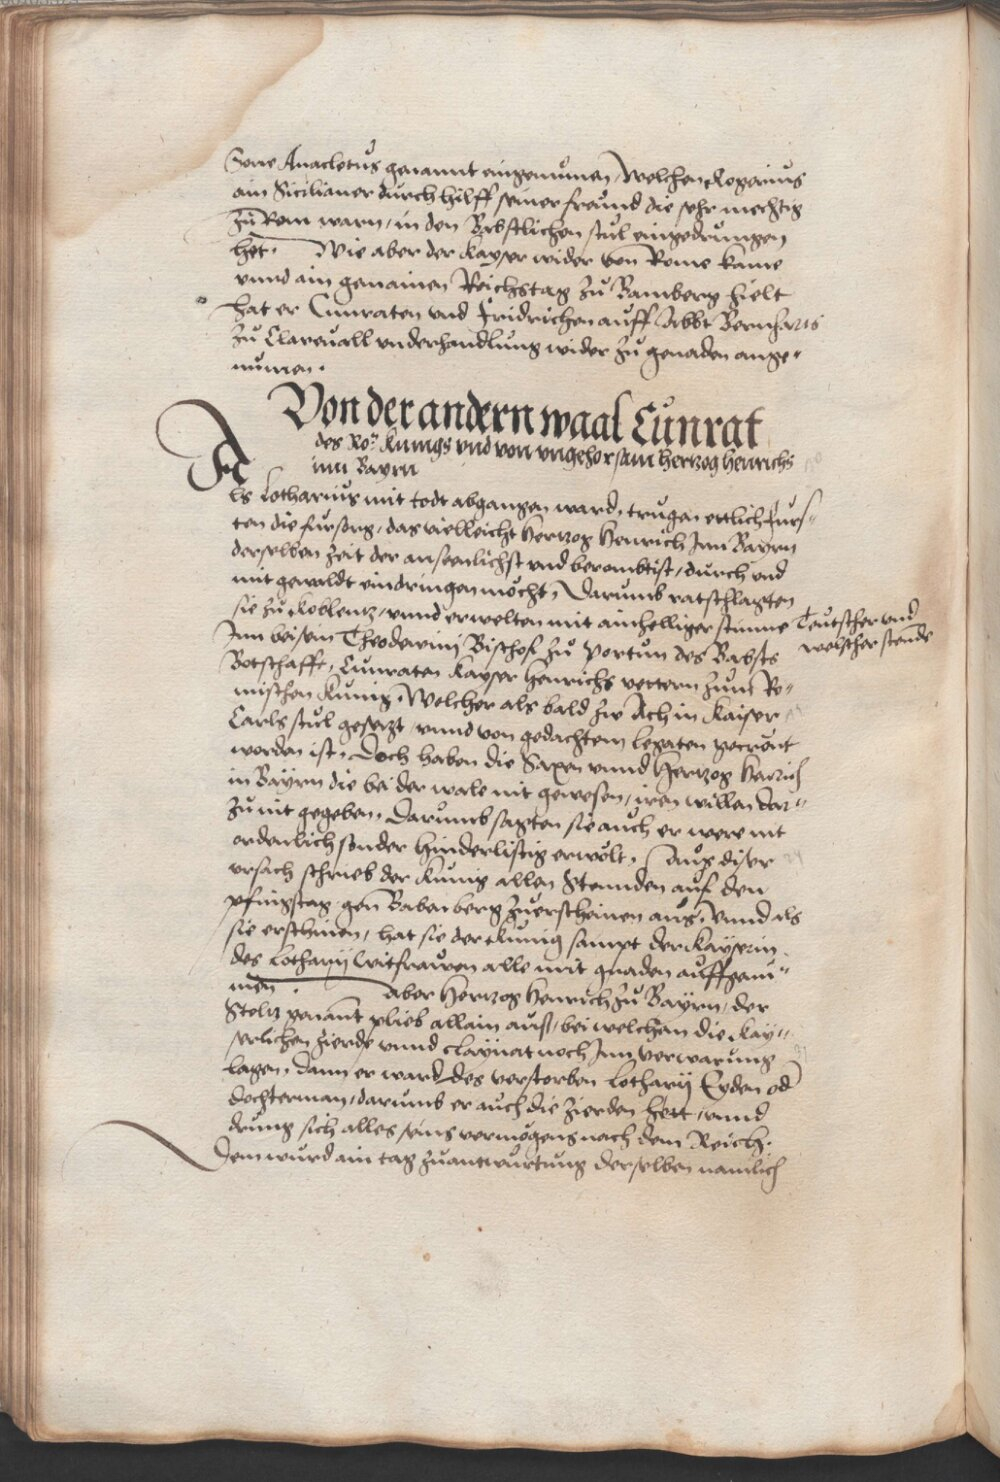 Sone Anacletus genannt eingenumen, Welchen Rogerius
ain Sicilianer durch hilff seiner freund die sehr mechtig
zu Rom warn, in den Bebstlichen stul eingedrungen
het. Wie aber der Kayser wider von Rome kame
vnnd ain gemainen Reichstag zu Bamberg hielt
hat er Cunraten vnd Fridrichen auff Abbt Bernharts
zu Clareuall vnderhandlung wider zu genaden ange"
numen.
Von der andern waal Cunrat
des Ro: Kunigs vnd von vngehorsam hertzog Henrichs
inn Bayrn
Als Lotharius mit todt abgangen ward, trugen ettlich Furs"
ten die fursorg, das villeicht Hertzog Henrich Inn Bayrn
derselben zeit der ansehnlichst vnd beromtist, durch vnd
mit gewaldt eindringen mocht, Darumb ratschlagten
sie zu Koblentz, vnnd erwelten mit ainhelliger stimme Teutscher vnd
welscher stende
Inn beisein Theodewinj Bischof zu Portun des Babsts
Botschafft, Cunraten Kayser Henrichs vettern zum Ro"
mischen Kunig, Welcher als bald zu Ach in Kaiser
Carls stul gesetzt, vnnd von gedachtem legaten gecront
worden ist, Doch haben die Saxen vnnd Hertzog Henrich
in Bayrn die bei der wale nit gewesen, iren willen dar"
zu nit gegeben, Darumb sagten sie auch er were nit
ordenlich sonder hinderlistig erwolt. Aus diser
vrsach schrieb der Kunig allen Stennden auf den
pfingstag gen Babenberg zuerscheinen aus, vnnd als
sie erschinen, hat sie der Kunig sampt der Kayserin
des Lotharij witfrawen alle mit gnaden auffgenu"
men. Aber Hertzog Henrich zu Bayrn, der
Stoltz genant plieb allain aus, bei welchem die Kay"
serlichen zierde vnnd claynat noch Inn verwarung
lagen, dann er ward des verstorben Lotharij Eyden od
dochterman, darumb er auch die zierden hett, vnnd
drung sich alles seins vermogens nach dem Reich.
Dem wurd ain tag zu antwurtung derselben namlich